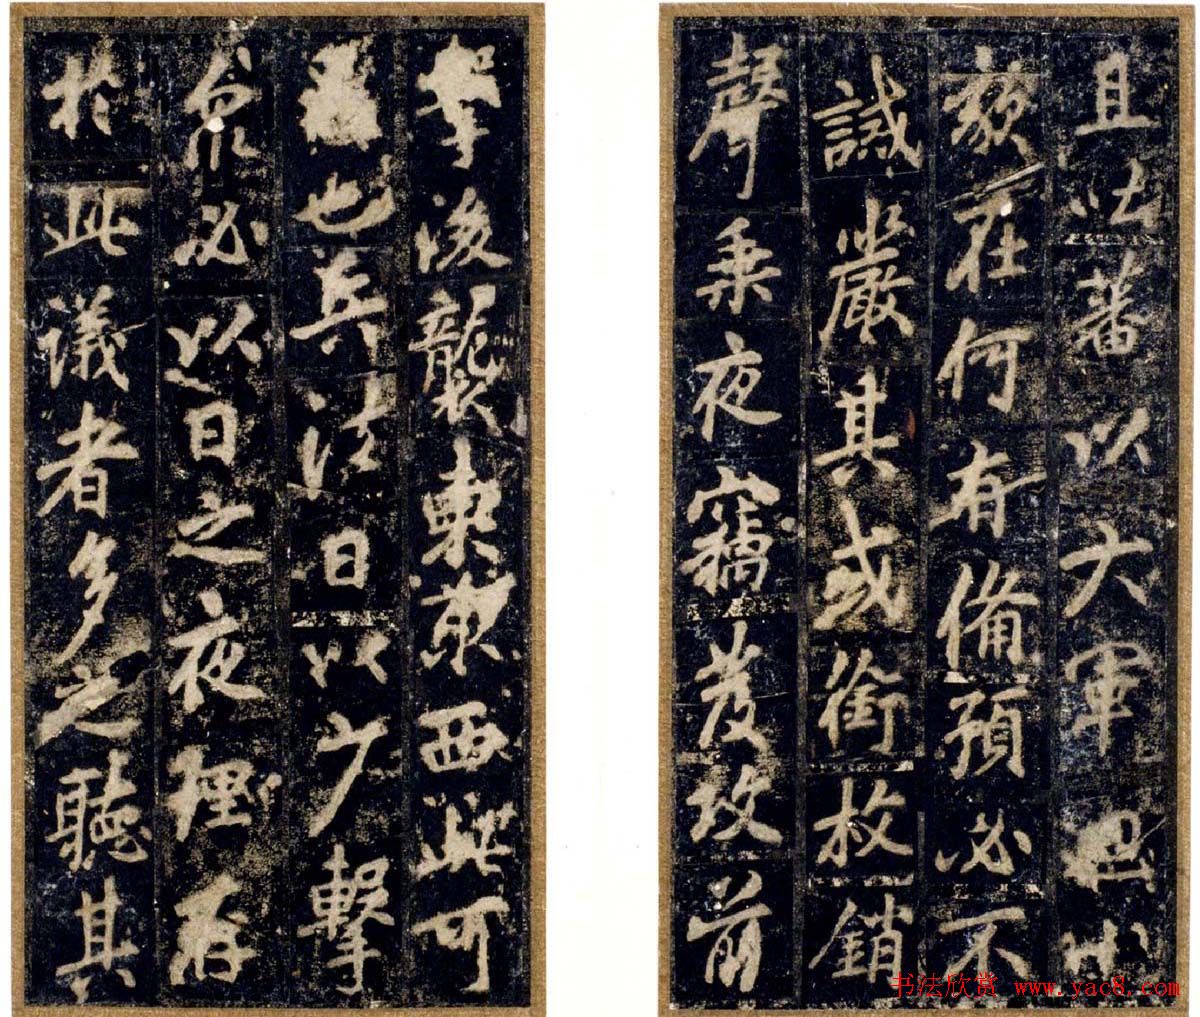 且吐蕃以大軍小
在何有備預必不
誡嚴其或銜枚銷
聲乘夜竊發攻前
後襲東西此可
也兵法曰以少擊
衆必以日之夜存
於此議者多之聽其
书法欣赏 www.yac8.com